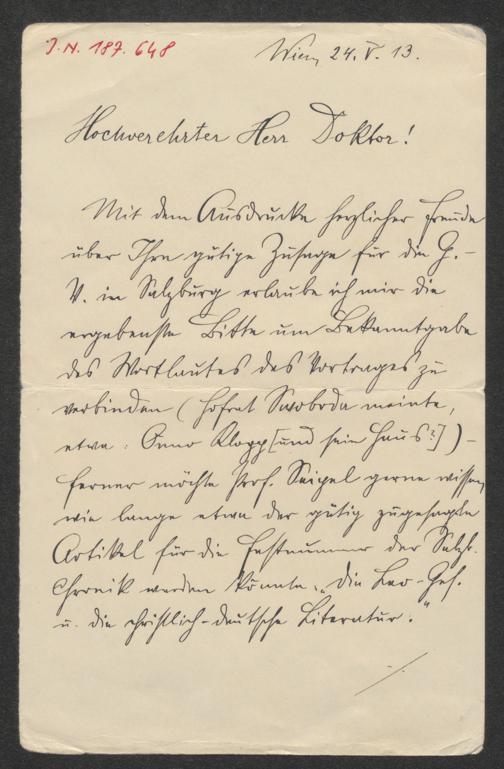 J.N. 187.648
Wien, 24. V. 13.
Hochverehrter Herr Doktor!
Mit dem Ausdrucke herzlicher Freude
über Ihre gütige Zusage für die G.-
V. in Salzburg erlaube ich mir die
ergebenste Bitte um Bekanntgabe
des Wortlautes des Vortrages zu
verbinden (Hofrat Swoboda meinte,
etwa: Onno Klopp [und sein Haus?]) –
ferner möchte Prof. Seipel gerne wissen,
wie lange etwa der gütig zugesagte
Artikel für die Festnummer der Salzb.
Chronik werden könnte: „Die Leo-Ges.
u. die christlich-deutsche Literatur."